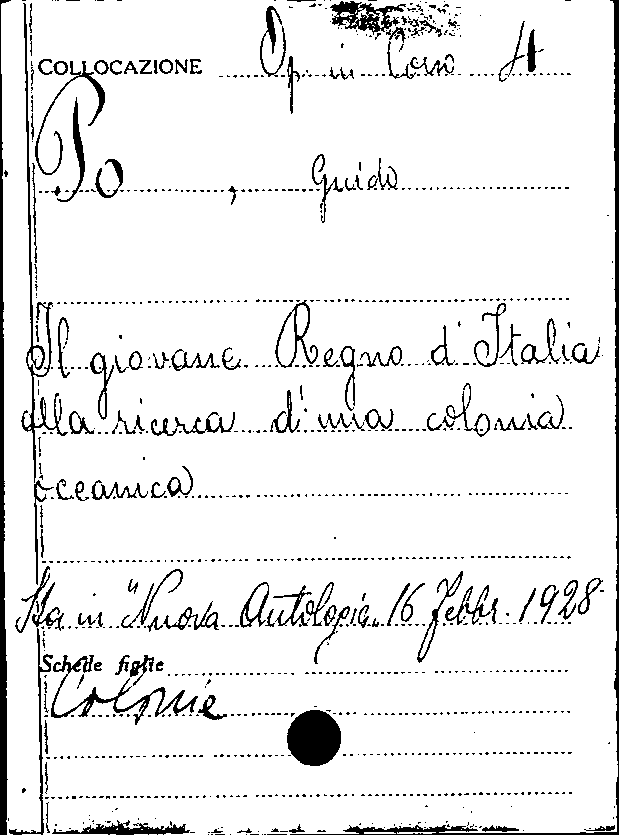 COLLOCAZIONE Op. in Corso 4
Po, Guido
Il giovane Regno d'Italia
alla ricerca d'una colonia
oceanica
Sta in "Nuova Antologia" 16 Febbr. 1928
Schede figlie
Colonie